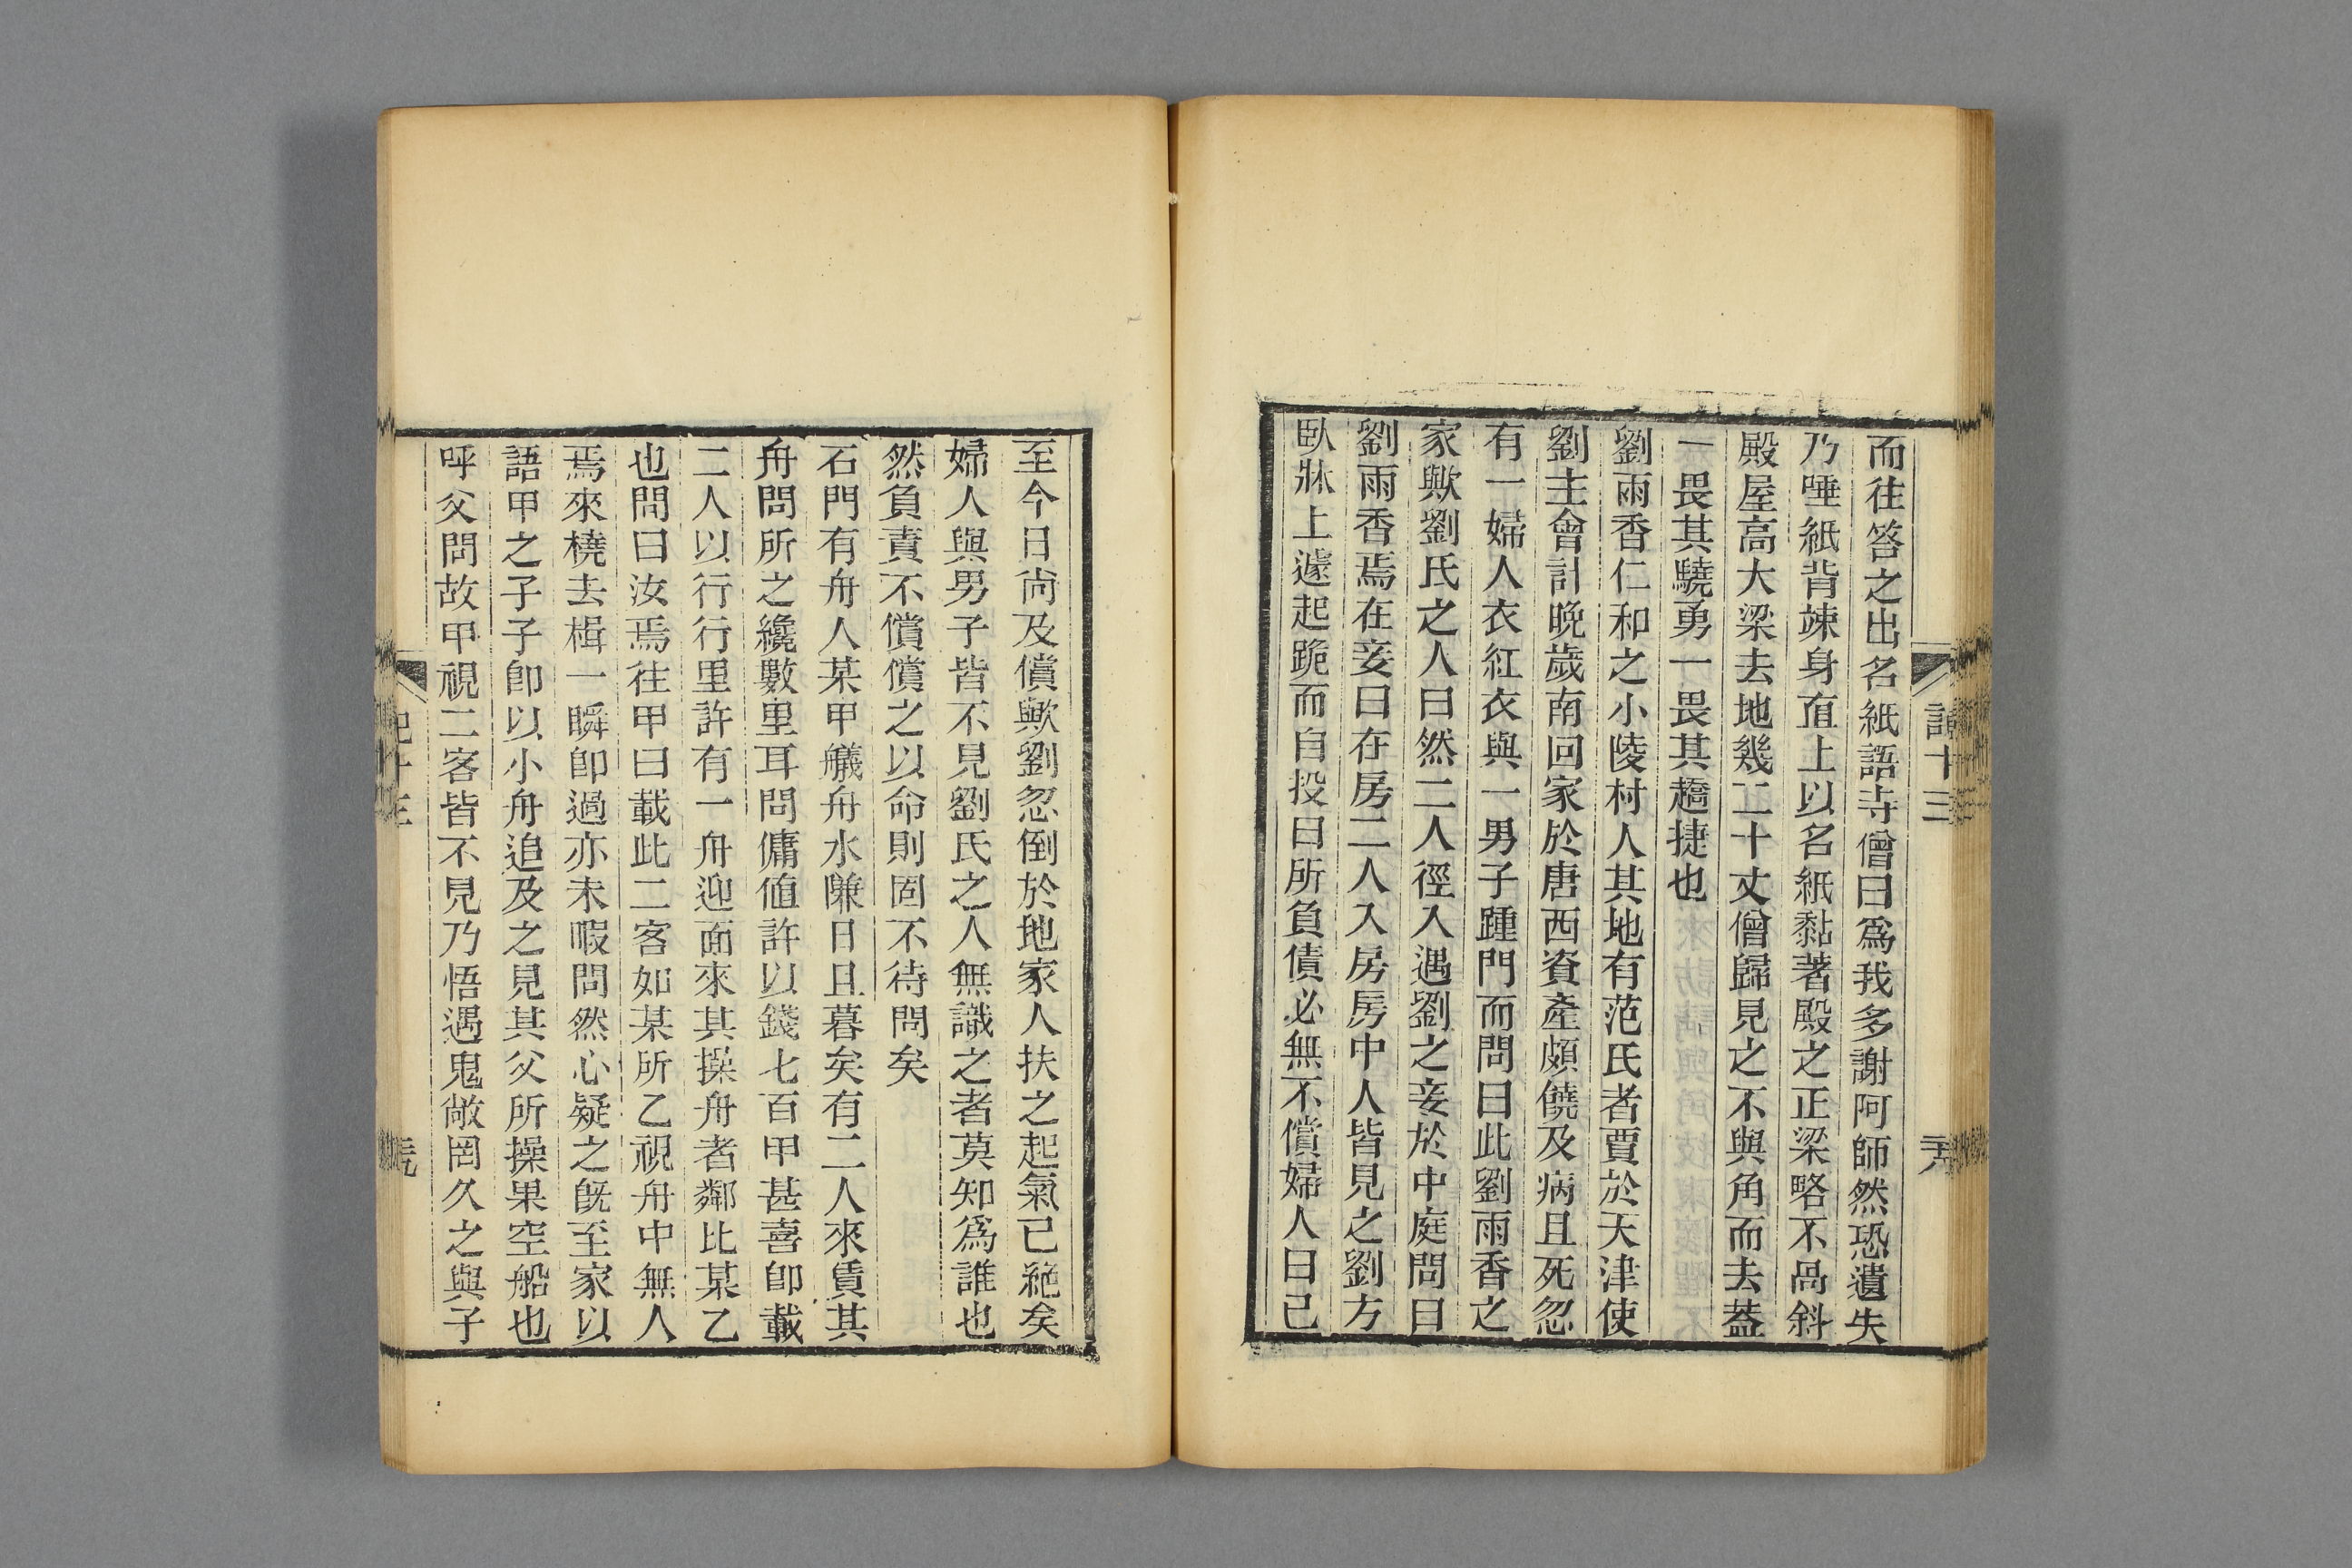 而往答之出名紙語寺僧曰爲我多謝阿師然恐遺失
乃唾紙背竦身直上以名紙黏著殿之正梁略不咼斜
殿屋高大梁去地幾二十丈僧歸見之不與角而去葢
一畏其驍勇一畏其趫捷也
劉雨香仁和之小陵村人其地有范氏者賈於天津使
劉主會計晚歲南回家於唐西資產頗饒及病且死忽
有一婦人衣紅衣與一男子踵門而問曰此劉雨香之
家歟劉氏之人曰然二人徑入遇劉之妾於中庭問曰
劉雨香焉在妾曰在房二人入房房中人皆見之劉方
臥牀上遽起跪而自投曰所負債必無不償婦人曰已
至今日尚及償歟劉忽倒於地家人扶之起氣已絕矣
婦人與男子皆不見劉氏之人無識之者莫知爲誰也
然負責不償償之以命則固不待問矣
石門有舟人某甲艤舟水隒日且暮矣有二人來賃其
舟問所之纔數里耳問傭値許以錢七百甲甚喜卽載
二人以行行里許有一舟迎面來其操舟者鄰比某乙
也問曰汝焉往甲曰載此二客如某所乙視舟中無人
焉來橈去楫一瞬卽過亦未暇問然心疑之旣至家以
語甲之子子卽以小舟追及之見其父所操果空船也
呼父問故甲視二客皆不見乃悟遇鬼敞罔久之與子